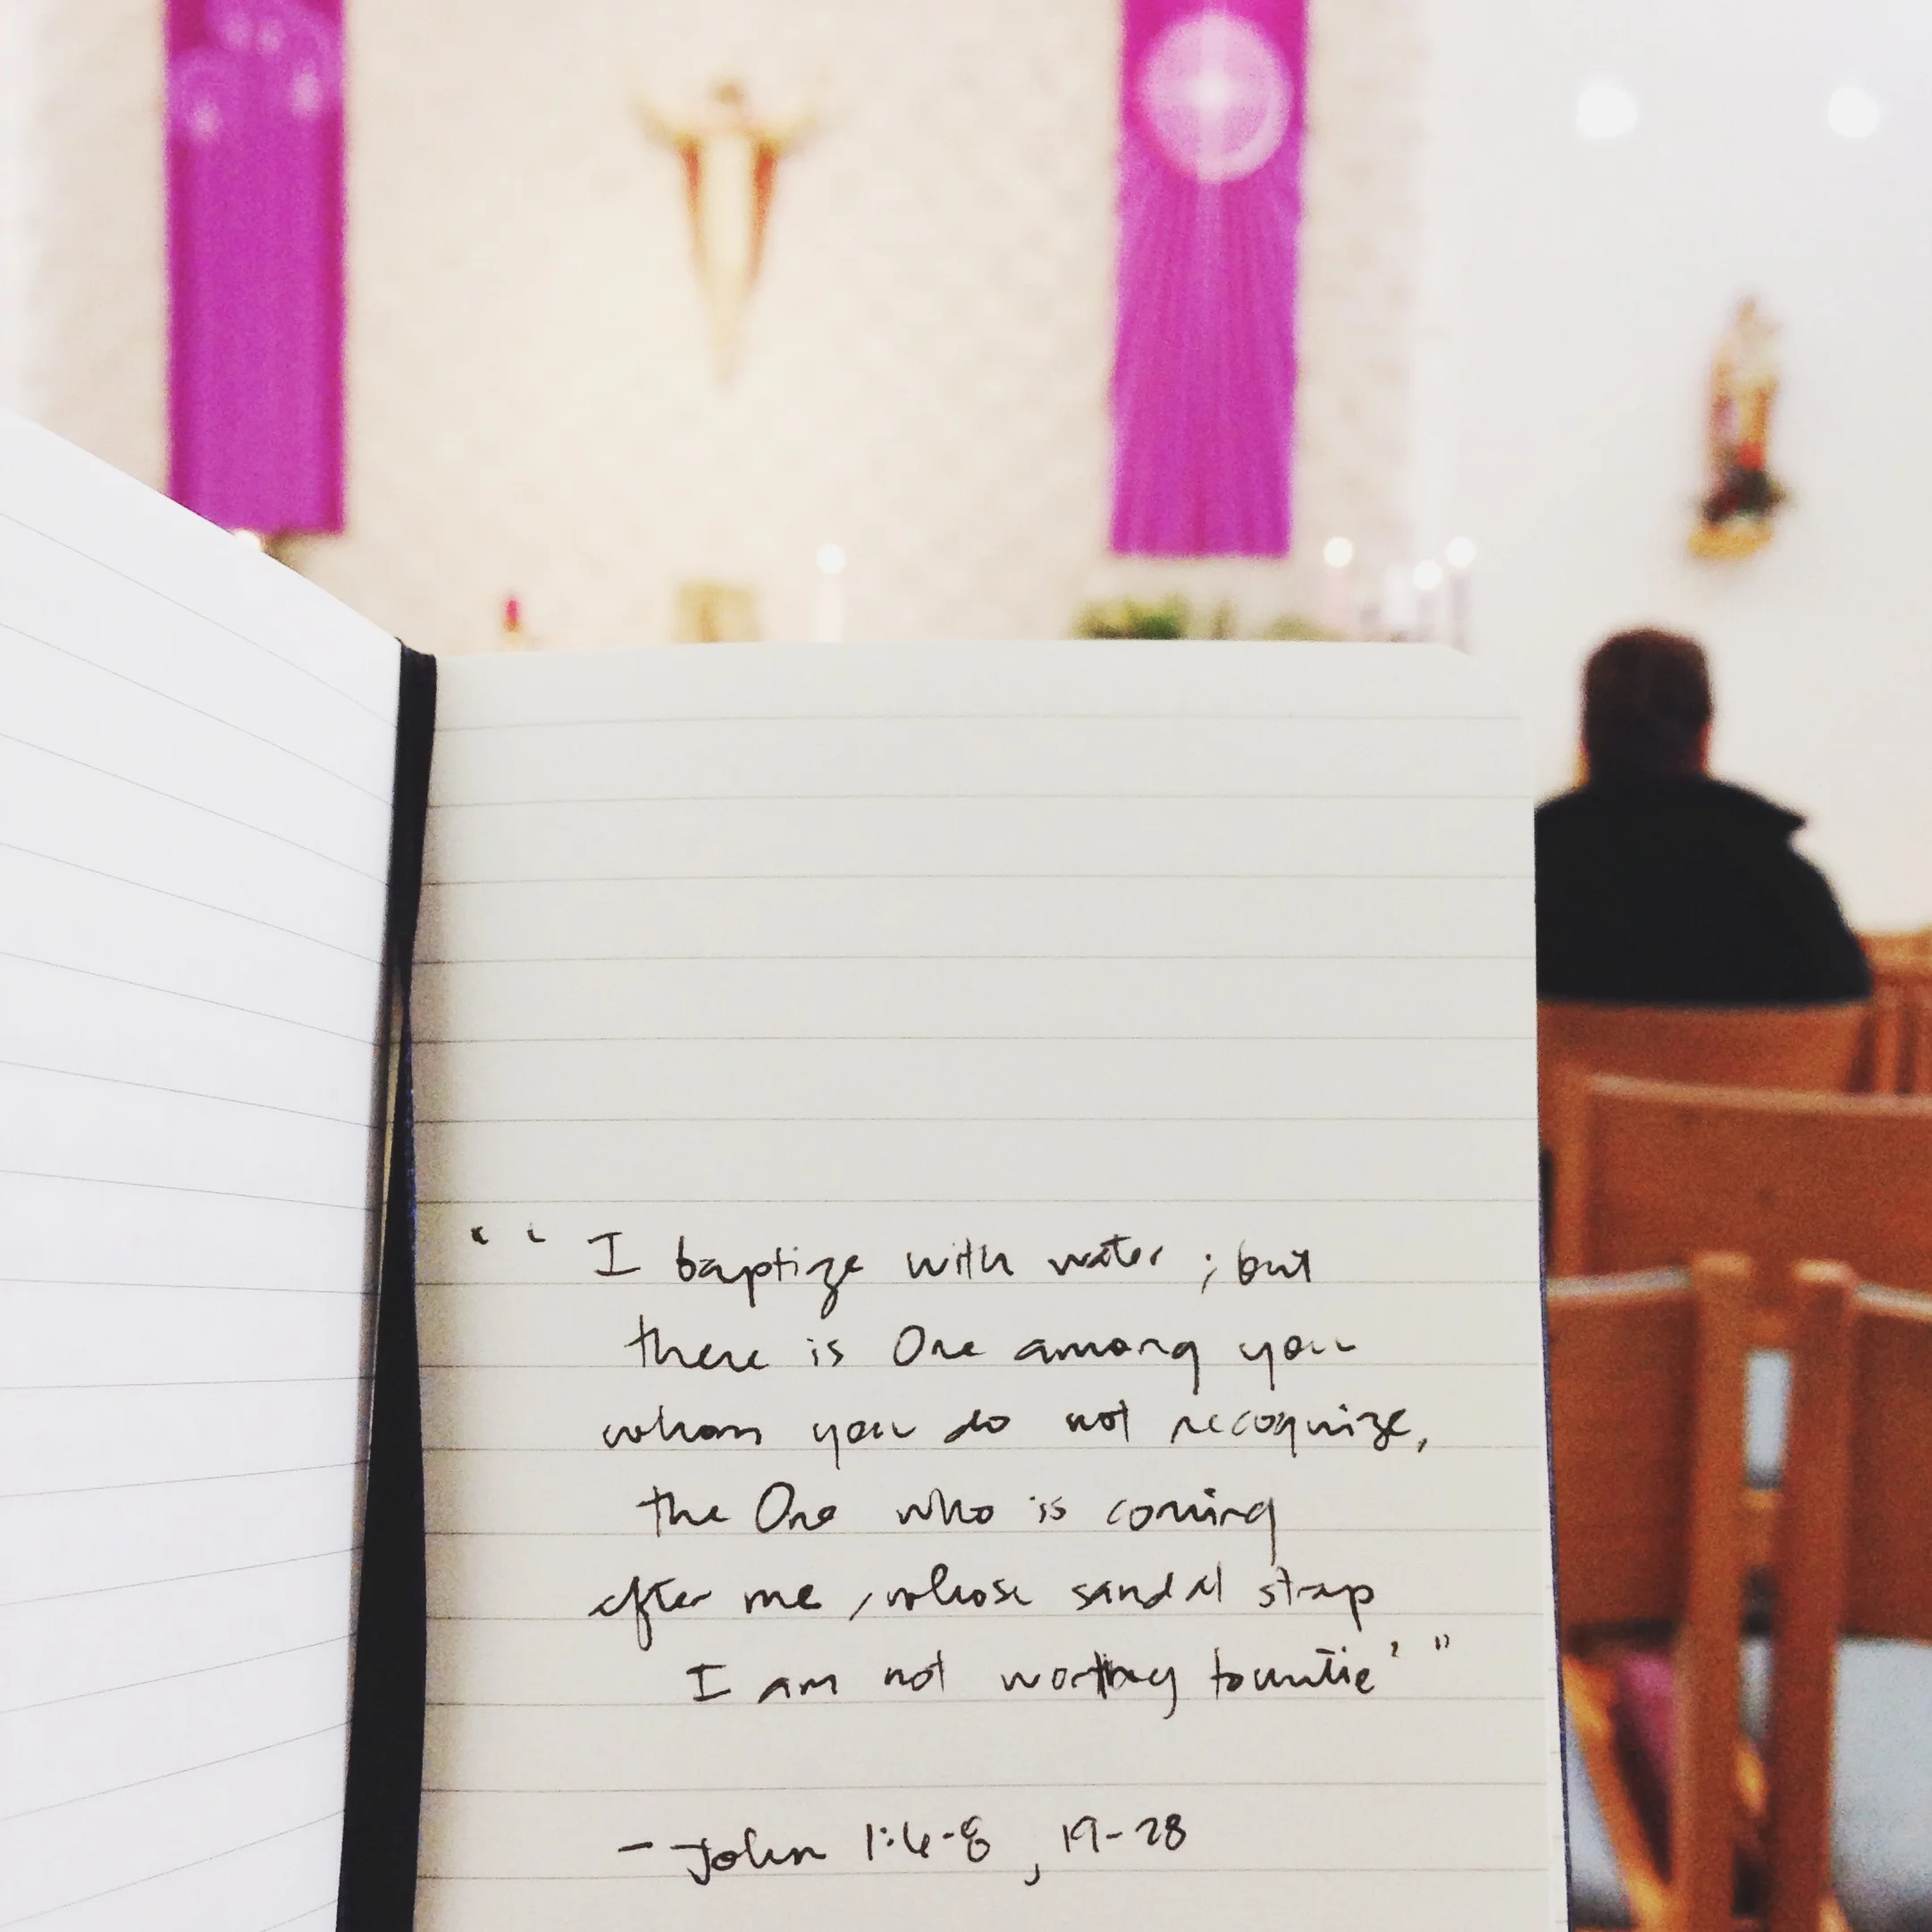 “ ‘ I baptize with water ; but
there is One among you
whom you do not recognize,
the One who is coming
after me , whose sandal strap
I am not worthy to untie ’ ”
— John 1:6-8 , 19-28